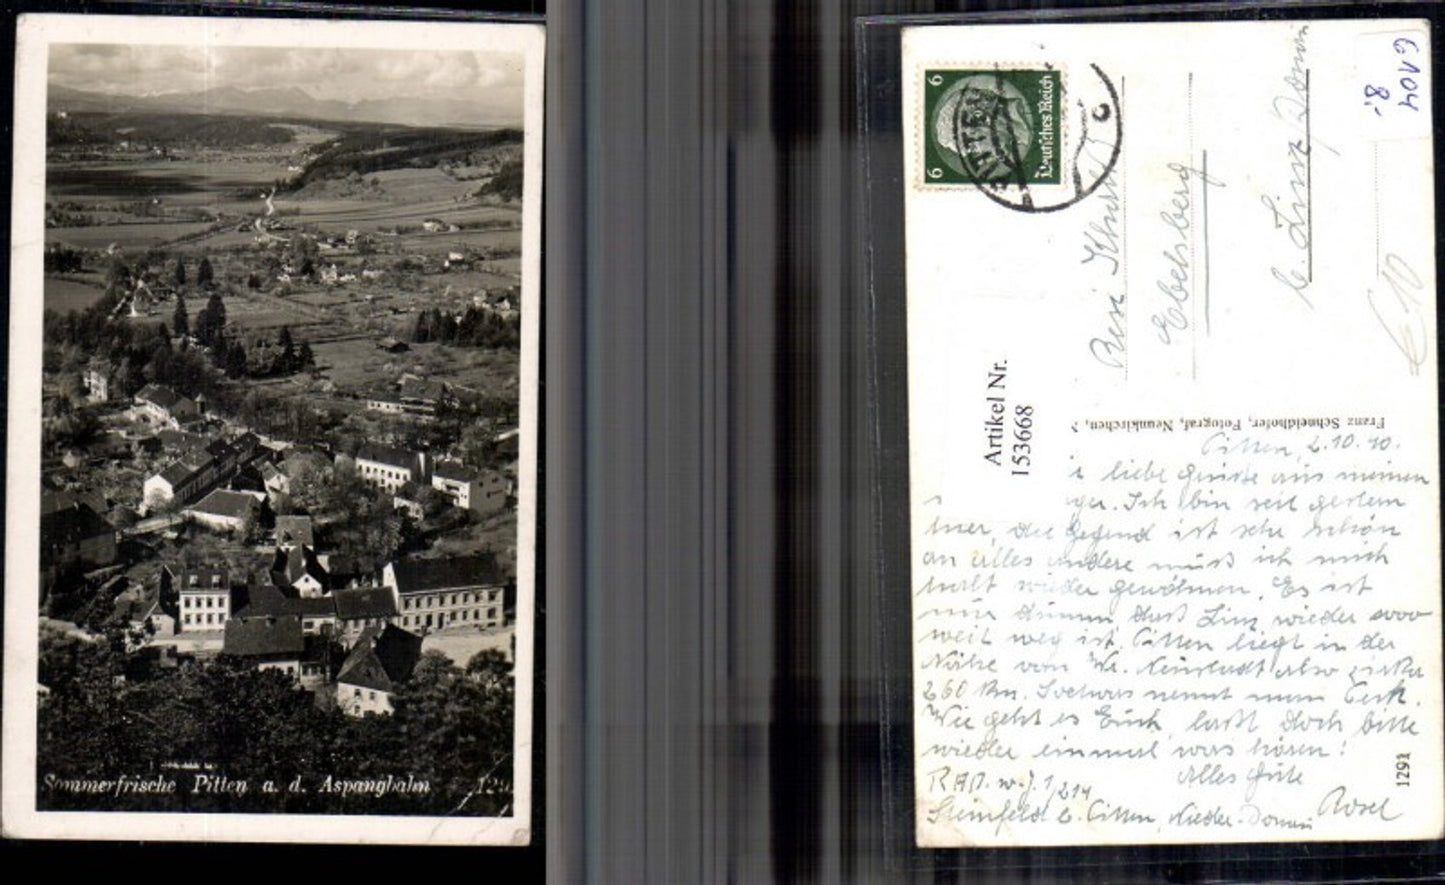 Sommerfrische Pitten a. d. Aspangbahn 129
6 Deutsches Reich 6
PITTEN
G 104
8.-
€ 10
Resi
Ebelsberg
b. Linz Donau
Artikel Nr.
153668
Franz Schneidhofer, Fotograf, Neunkirchen,
Pitten, 2.10.40.
liebe Grüße aus meinem
Ich bin seit gestern
hier, die Gegend ist sehr schön
an alles andere muß ich mich
halt wieder gewöhnen. Es ist
nur dumm daß Linz wieder sooo
weit weg ist. Pitten liegt in der
Nähe von Wr. Neustadt also zirka
260 km. Sowas nennt man Pech.
Wie geht es Euch, laßt doch bitte
wiedler einmal was hören!
Alles Gute
Rosel
RAD. w. J. 1/214
Steinfeld b. Pitten, Nieder-Donau
1291